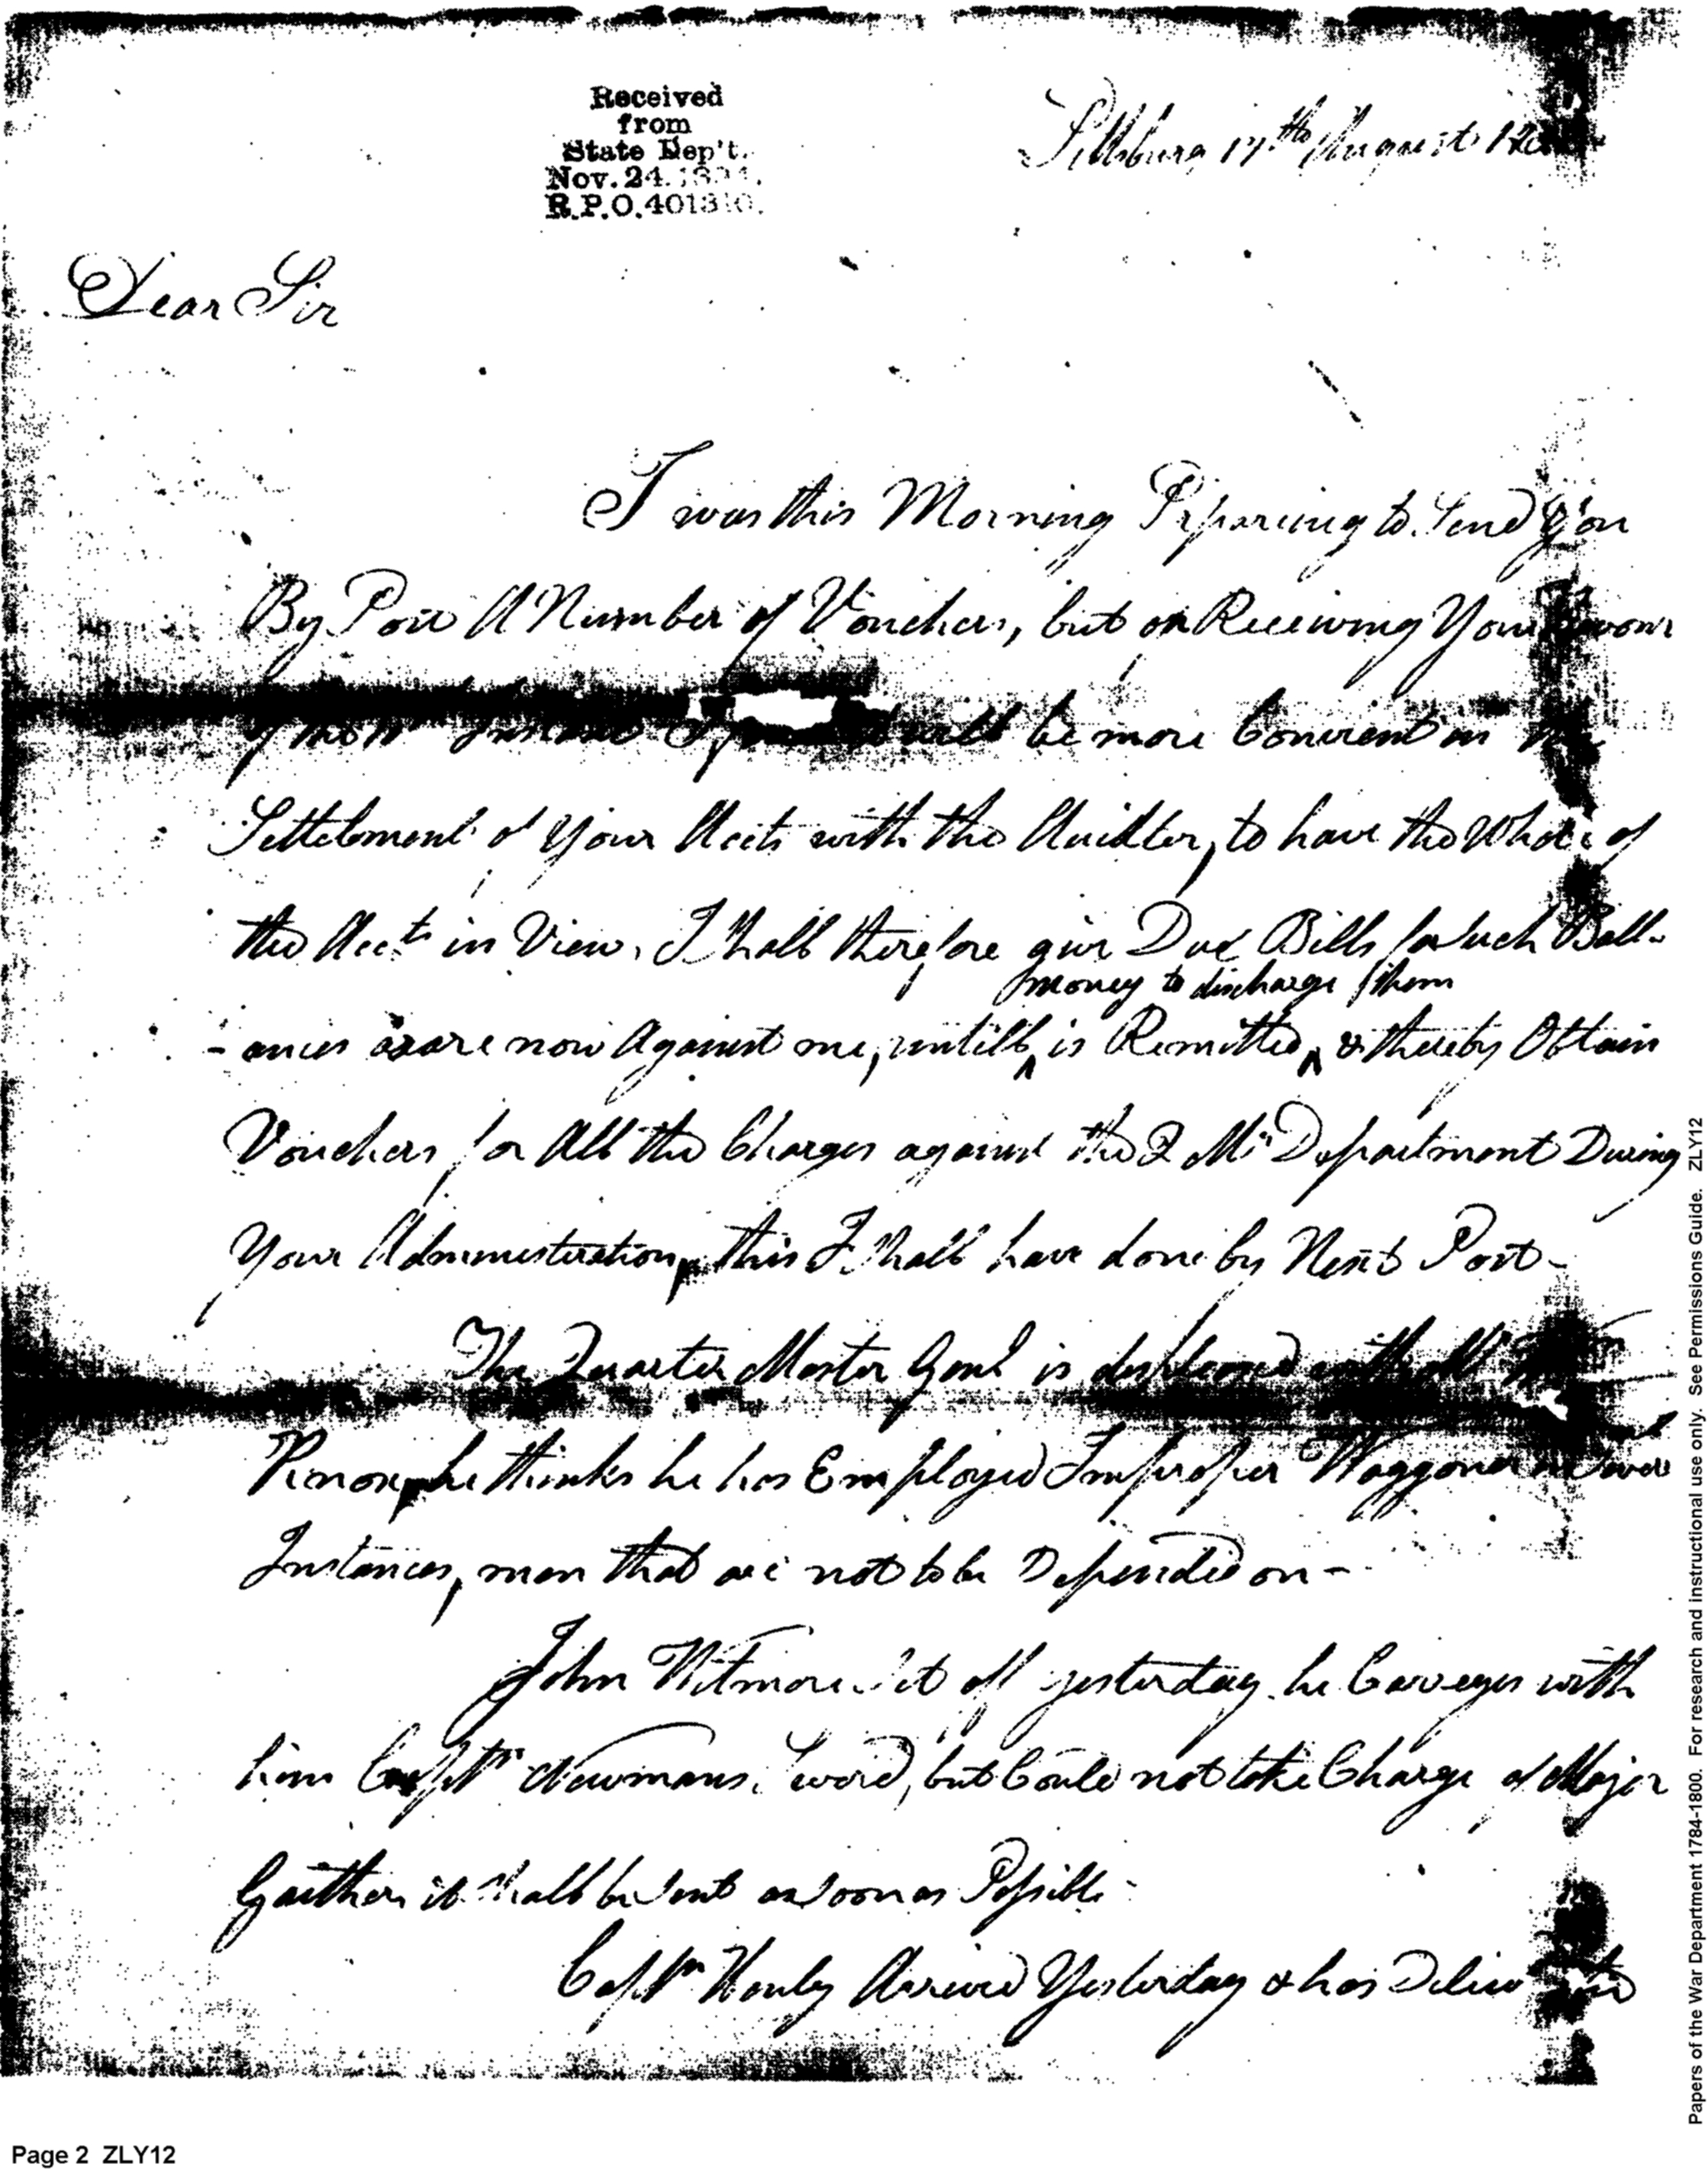 Received
from
State Dep't.
Nov. 24. 1894.
R.P.O. 401310.
Pittsburg 17th August
Dear Sir
I was this Morning Preparing to Send You
By Post A Number of Vouchers, but on Receiving Your Favour
of the Instant I will be more Convient in
Settelement of Your Accts with the Auditor, to have the Whole of
the Accts in View, I Shall therefore give Due Bills for Such Ball-
-ances as are now Against me, untill money to discharge them is Remitted, & thereby Obtain
Vouchers for All the Charges against the Q Mrs Department During
Your Administration, this I Shall have done by Next Post -
The Quarter Master Genl is displeased with
he thinks he has Employed Improper Waggoners in Several
Instances, men that are not to be Depended on -
John Witmore Set off yesterday he Carreyes with
him Captn Newmans Sword, but Could not take Charge of Major
Gaithers it Shall be Sent as Soon as Possible -
Captn Arrived Yesterday & has
Page 2 ZLY12
Papers of the War Department 1784-1800. For research and instructional use only. See Permissions Guide. ZLY12